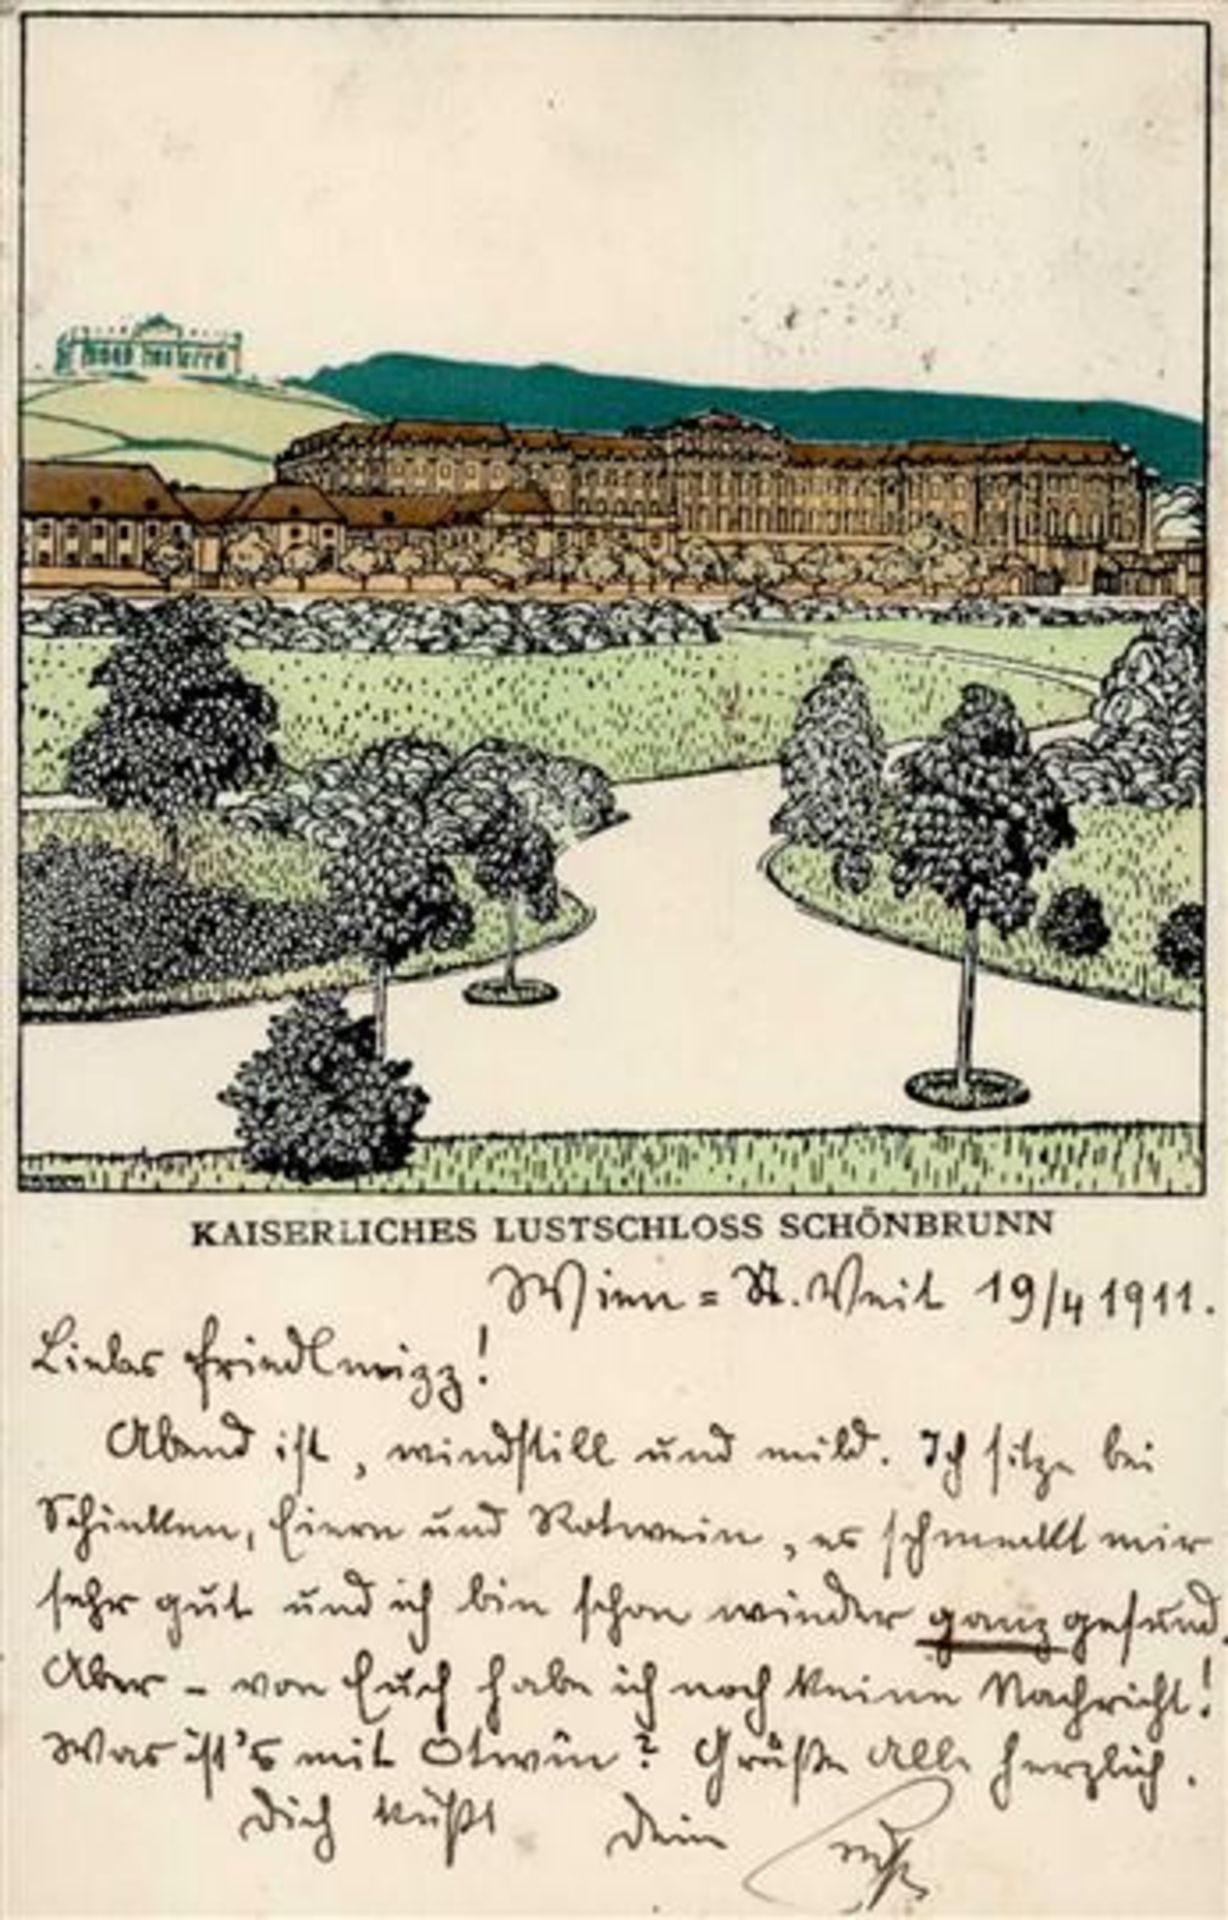 KAISERLICHES LUSTSCHLOSS SCHÖNBRUNN
Wien = St. Veit 19/4 1911.
Liebes
Abend ist, windstill und mild. Ich sitze bei
Schinken, Eiern und Rotwein, es schmeckt mir
sehr gut und ich bin schon wieder ganz gesund.
Aber – von Euch habe ich noch keine Nachricht!
Was ist's mit Otwin? Grüße Alle herzlich.
Dich küßt Dein